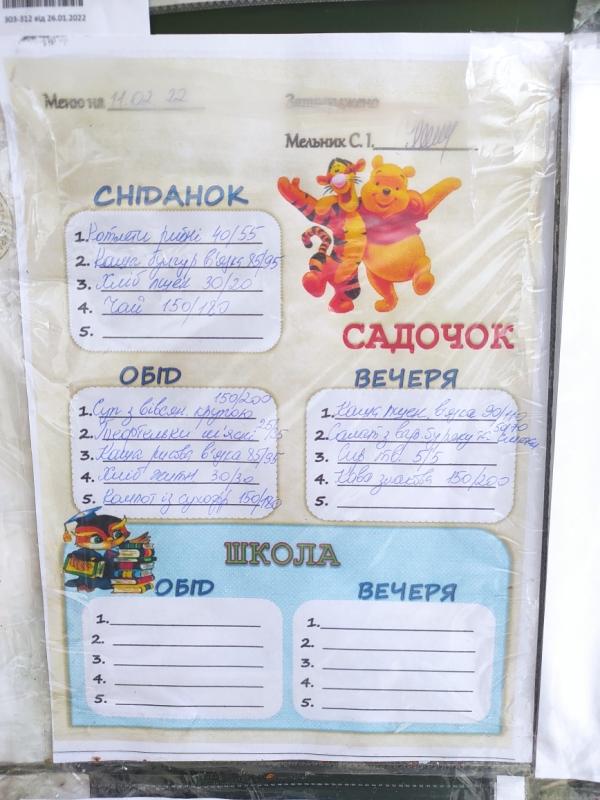 303-312 від 26.01.2022
Меню на 11.02 22
Затверджено
Мельник С. І.
СНІДАНОК
1. Котлети рибні 40/55
2. Каша булгур в'язка 85/95
3. Хліб пшен 30/20
4. Чай 150/180
5.
САДОЧОК
ОБІД
1. Суп з вівсян. крупою 150/200
2. Тефтельки м'ясні
3. Каша рисова в'язка 85/95
4. Хліб житн 30/30
5. Компот із сухофр 150/180
ВЕЧЕРЯ
1. Каша пшен в'язка 90/110
2. Салат з вар буряку 50/70
3. 5/5
4. Кава злакова 150/200
5.
ШКОЛА
ОБІД
1.
2.
3.
4.
5.
ВЕЧЕРЯ
1.
2.
3.
4.
5.